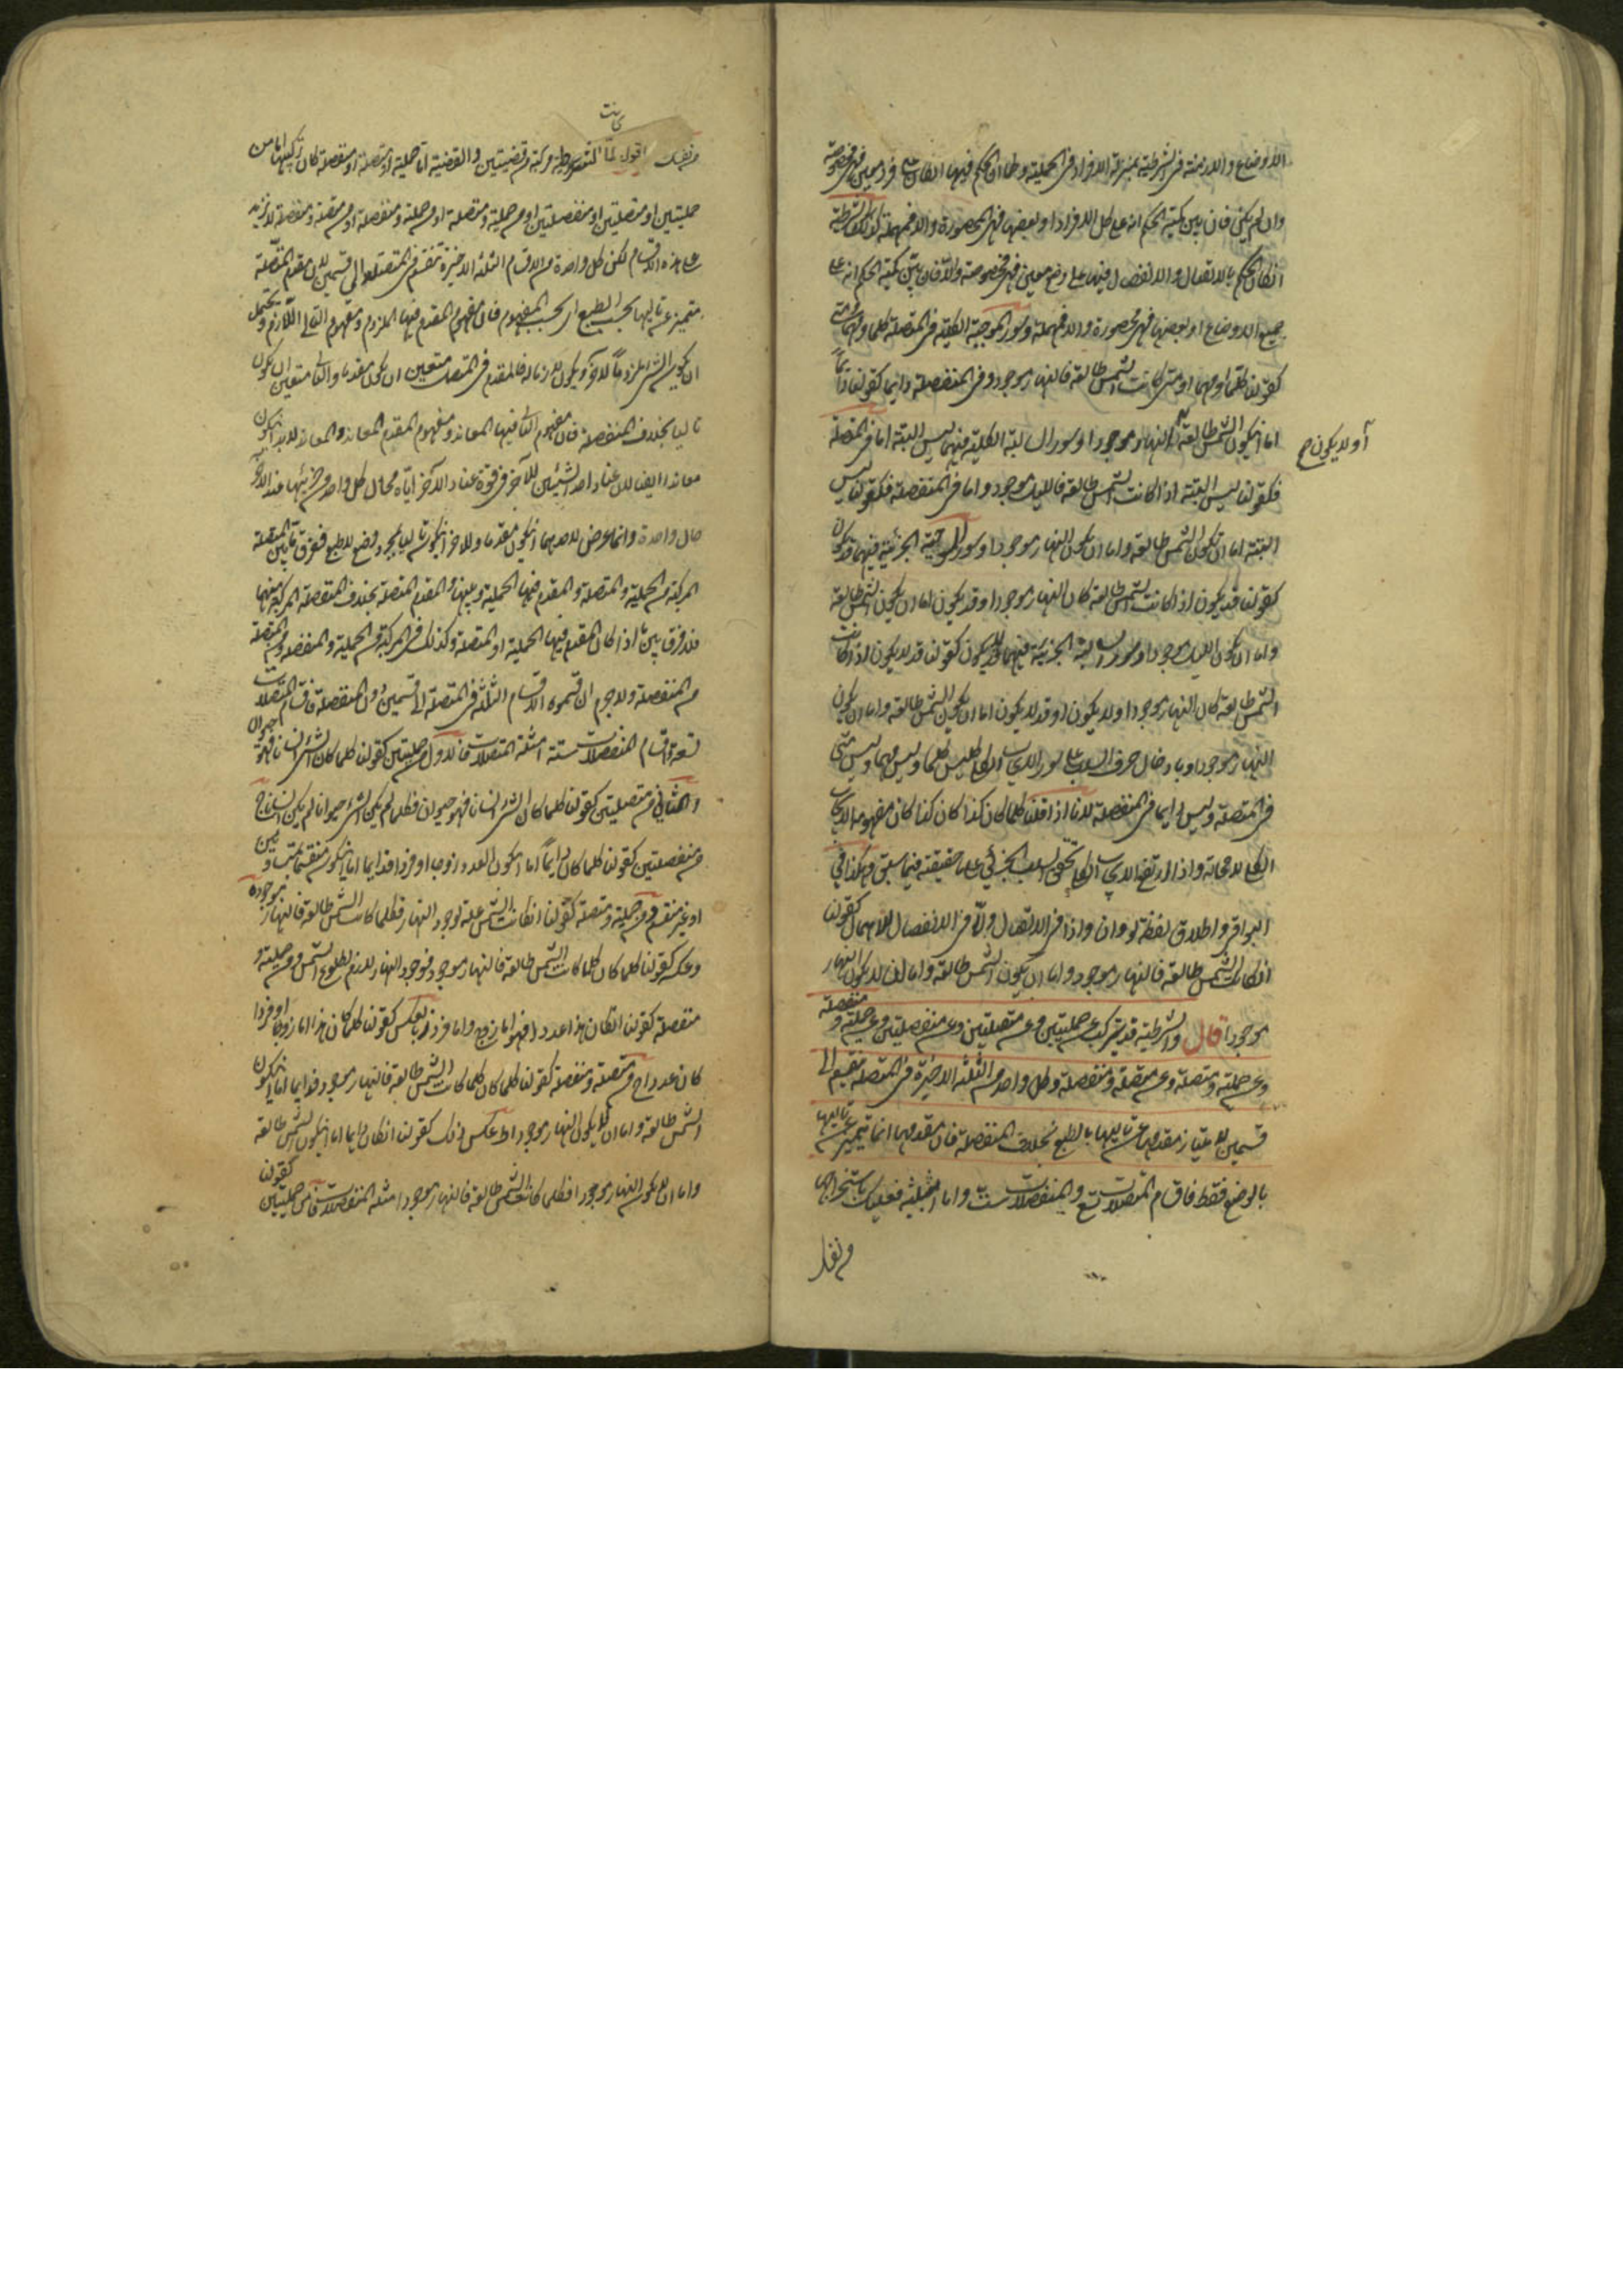 الاوضاع والازمنة فى الشرطية بمنزلة الافراد فى الحملية وكما ان الحكم فيها ان كان على فرد معين فهى مخصوصة
وان لم يكن فان بين كمية الحكم انه على كل الافراد او بعضها فهى المحصورة والا فمهملة كذلك الشرطية
ان كان الحكم بالاتصال والانفصال فيها على وضع معين فهى مخصوصة والا فان بين كمية الحكم انه على
جميع الاوضاع او بعضها فهى محصورة والا فمهملة وسور الموجبة الكلية فى المتصلة كلما ومهما ومتى
كقولنا كلما او مهما او متى كانت الشمس طالعة فالنهار موجود وفى المنفصلة دايما كقولنا دايما
اما ان يكون الشمس طالعة النهار موجودا وسور السالبة الكلية فيهما ليس البتة اما فى المتصلة
او لا يكون
فكقولنا ليس البتة اذا كانت الشمس طالعة فالليل موجود واما فى المنفصلة فكقولنا ليس
البتة اما ان تكون الشمس طالعة واما ان يكون النهار موجودا وسور الموجبة الجزئية فيهما قد يكون
كقولنا قد يكون اذا كانت الشمس طالعة كان النهار موجودا وقد يكون اما ان يكون الشمس طالعة
واما ان يكون الليل موجودا وسور السالبة الجزئية فيهما قد لا يكون كقولنا قد لا يكون اذا كانت
الشمس طالعة كان النهار موجودا ولا يكون او قد لا يكون اما ان يكون الشمس طالعة واما ان يكون
النهار موجودا وبادخال حرف السلب على سور الايجاب الكلى كليس كلما وليس مهما وليس متى
فى المتصلة وليس دايما فى المنفصلة لانا اذا قلنا كلما كان كذا كان كذا كان مفهومه الايجاب
الكلى لا محالة واذا ارتفع الايجاب الكلى تحقق السلب الجزئى على ما حقيقته فيما سبق وهكذا فى
البواقى واطلاق لفظة لو وان واذا فى الاتصال واما فى الانفصال للاهمال كقولنا
ان كانت الشمس طالعة فالنهار موجود واما ان يكون الشمس طالعة واما ان لا يكون النهار
موجودا قال والشرطية قد يتركب عن حمليتين وعن متصلتين وعن منفصلتين وعن حملية و منفصلة
وعن حملية ومتصلة وعن متصلة ومنفصلة وكل واحد من الثلثة الاخيرة فى المتصلة ينقسم الى
قسمين لامتياز مقدمها عن تاليها بالطبع بخلاف المنفصلة فان مقدمها انما يتميز عن تاليها
بالوضع فقط فاقسام المتصلات تسع والمنفصلات ست واما امثلتها فعليك باستخراجها
من نفسك
من نفسك اقول لما كانت الشرطية مركبة من قضيتين والقضية اما حملية او متصلة او منفصلة كان تركيبها اما من
حمليتين او متصلتين او منفصلتين او من حملية ومتصلة او من حملية ومنفصلة او من متصلة ومنفصلة لا يزيد
على هذه الاقسام لكن كل واحدة من الاقسام الثلثة الاخيرة تنقسم فى المتصلة الى قسمين لان مقدم المتصلة
متميز عن تاليها بحسب الطبع اى بحسب المفهوم فان مفهوم المقدم فيها الملزوم ومفهوم التالى اللازم ويحتمل
ان يكون الشئ ملزوما لاخر ولا يكون لازما له فالمقدم فى المتصلة متعين ان يكون مقدما والتالى متعين ان يكون
تاليا بخلاف المنفصلة فان مفهوم التالى فيها المعاند ومفهوم المقدم المعاند والمعاند لا بد ان يكون
معاندا ايضا لان عناد احد الشيئين للآخر فى قوة عناد الآخر اياه فحال كل واحد من جزئيها عند الآخر
حال واحدة وانما عرض لاحدهما ان يكون مقدما وللآخر ان يكون تاليا بمجرد وضع لا طبع ففرق ما بين المتصلة
المركبة من الحملية والمتصلة والمقدم فيها الحملية وبينها والمقدم المتصلة بخلاف المنفصلة المركبة منهما
فلا فرق بين ما اذا كان المقدم فيها الحملية او المتصلة وكذلك فى المركبة من الحملية والمنفصلة ومن المتصلة
من المنفصلة ولا جرم انقسمت الاقسام الثلثة فى المتصلة الى قسمين دون المنفصلة فاقسام المتصلات
تسعة واقسام المنفصلات ستة امثلة المتصلات فالاول من حمليتين كقولنا كلما كان الشئ انسانا فهو حيوان
والثانى من متصلتين كقولنا كلما كان الشئ انسانا فهو حيوان فكلما لم يكن الشئ حيوانا لم يكن انسانا ج
من منفصلتين كقولنا كلما كان دايما اما ان يكون العدد زوجا او فردا فدايما اما ان يكون منقسما بمتساويين
او غير منقسم ومن حملية ومتصلة كقولنا ان كانت الشمس علة لوجود النهار فكلما كانت الشمس طالعة فالنهار موجود
وعكسه كقولنا كلما كان كلما كانت الشمس طالعة فالنهار موجود فوجود النهار لازم لطلوع الشمس ومن حملية و
منفصلة كقولنا ان كان هذا عددا فهو اما زوج واما فرد بالعكس كقولنا كلما كان هذا اما زوجا او فردا
كان عددا ح من متصلة ومنفصلة كقولنا كلما كان كلما كانت الشمس طالعة فالنهار موجود فدايما اما ان يكون
الشمس طالعة واما ان لا يكون النهار موجودا ط عكس ذلك كقولنا ان كان دايما اما ان يكون الشمس طالعة
واما ان لا يكون النهار موجودا فكلما كانت الشمس طالعة فالنهار موجود امثلة المنفصلات فا من حمليتين كقولنا